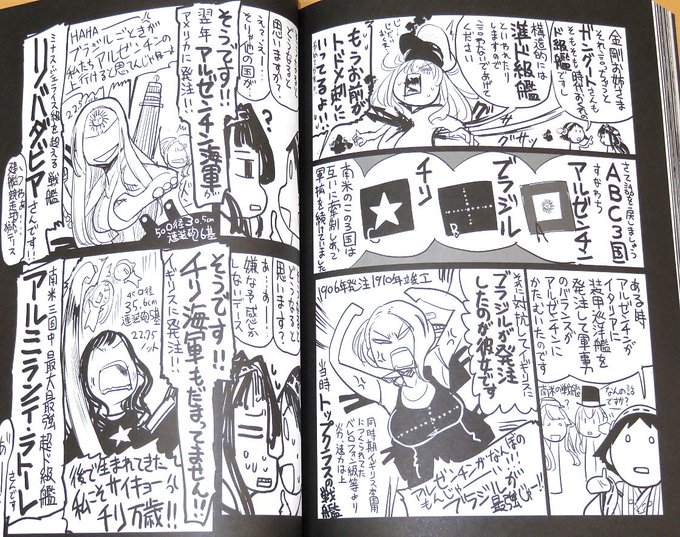 金剛お姉さま
それ言っちゃうと
ガングートさんも
そもそも時代おくれの
ド級艦です
構造的には
準ド級艦
といわれたり
しますので
言わないであげて
ください
もうお前が
トドメ刺しに
いってるよ!!
グサッ
さて話を戻しましょう
ABC3国
すなわち
アルゼンチン
ブラジル
チリ
A
B
C
南米のこの3国は
互いに牽制しあって
軍拡を続けていました
ある時
アルゼンチンが
イタリアに
装甲巡洋艦を
発注して軍事力
のバランスが
アルゼンチンに
かたむいたのです
なんの話
ですか?
南米の戦艦
1906年発注1910年竣工
それに対抗してイギリスに
ブラジルが発注
したのが彼女です
当時トップクラスの戦艦
同時期イギリス本国
につくられてた
ベレロフォン級等より
火力、速力は上
アルゼンチンがなんぼの
もんじゃー!!
ブラジルが
最強じゃー!!
どうなると
思いますか?
えっ…えー…
そりゃ他の国が
そうです!!
翌年アルゼンチン海軍が
アメリカに発注!!
HAHA
ブラジルごときが
私たちアルゼンチンの
上行けると思んじゃねーよ
50口径30.5cm
連装砲6基
ミナス・ジェライス級を超える戦艦
リバダビアさんです!!
建艦競走の続デース
どうなると
思います?
あー…
嫌な予感が
しないデース
そうです!
チリ海軍もだまってません!!
イギリスに発注!!
45口径
35.6cm
連装砲5基
22.75
ノット
後で生まれてきた
私こそサイキョー
チリ万歳!!
南米三国中最大最強超ド級艦
アルミランテ・ラトーレ
さんです!